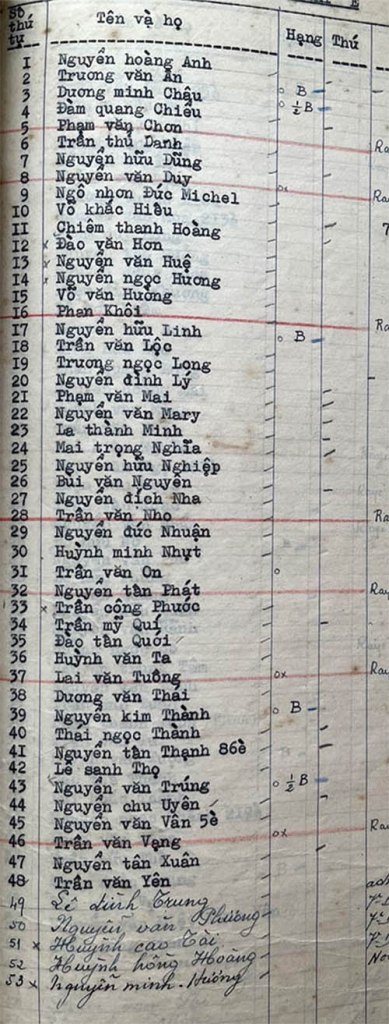 Số thứ tự Tên và họ Hạng Thú
1 Nguyễn hoàng Anh
2 Trương văn Ân
3 Dương minh Châu o B -
4 Đàm quang Chiểu o ½ B -
5 Phạm văn Chơn
6 Trần thủ Danh Ra
7 Nguyễn hữu Dũng
8 Nguyễn văn Duy
9 Ngô nhơn Đức Michel ox Ra
10 Võ khắc Hiếu
11 Chiêm thanh Hoàng
12 x Đào văn Hơn
13 x Nguyễn văn Huệ
14 x Nguyễn ngọc Hương
15 Võ văn Hưởng
16 Phan Khôi
17 Nguyễn hữu Linh o B - Ra
18 Trần văn Lộc
19 Trương ngọc Long
20 Nguyễn đình Lý
21 Phạm văn Mai
22 Nguyễn văn Mary
23 La thành Minh
24 Mai trọng Nghĩa
25 Nguyễn hữu Nghiệp
26 Bùi văn Nguyên
27 Nguyễn đích Nha
28 Trần văn Nho Ra
29 Nguyễn đức Nhuận
30 Huỳnh minh Nhựt
31 Trần văn On o
32 Nguyễn tấn Phát Ray
33 x Trần công Phước
34 Trần mỹ Quí
35 Đào tân Quới
36 Huỳnh văn Ta
37 Lai văn Tuồng ox Ra
38 Dương văn Thái
39 Nguyễn kim Thành o B -
40 Thai ngọc Thành
41 Nguyễn tân Thạnh 86è
42 Lê sanh Thọ
43 Nguyễn văn Trúng o ½ B -
44 Nguyễn chu Uyên
45 Nguyễn văn Vân 5è
46 Trần văn Vạng ox Ra
47 Nguyễn tân Xuân
48 Trần văn Yên
49 Lê đình Trung
50 Nguyễn văn Phương
51 x Huỳnh cao Tài
52 Huỳnh hồng Hoàng
53 x Nguyễn minh Hương